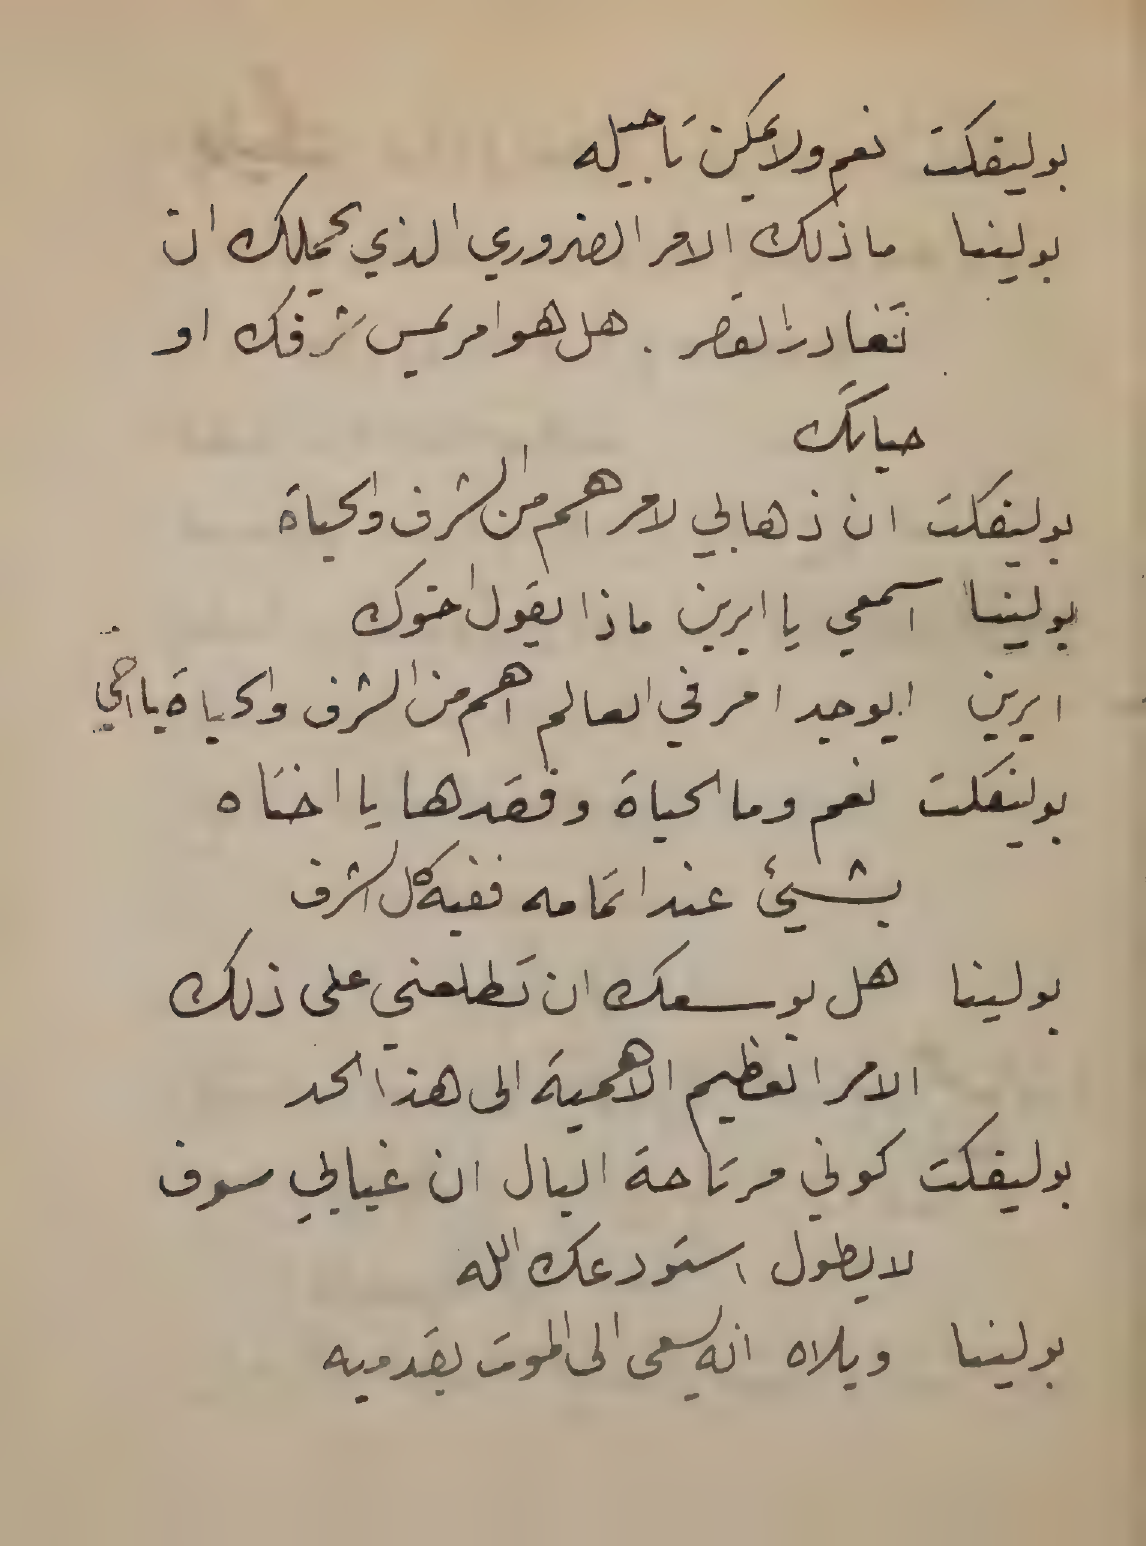 بوليفكت نعم ولا يمكن تاجيله
بولينا ما ذلك الامر الضروري الذي يحملك ان
تغادر القصر . هل هو امر يمس شرفك او
حياتك
بوليفكت ان ذهابي لامر اهم من الشرف والحياة
بولينا اسمعي يا ايرين ماذا يقول اخوك
ايرين ايوجد امر في العالم اهم من الشرف والحياة يا اخي
بوليفكت نعم وما الحياة وفقدها يا اختاه
بشيئ عند اتمامه ففيه كل الشرف
بولينا هل بوسعك ان تطلعني على ذلك
الامر العظيم الاهمية الى هذا الحد
بوليفكت كوني مرتاحة البال ان غيابي سوف
لا يطول استودعك الله
بولينا ويلاه انه يسعى الى الموت بقدميه